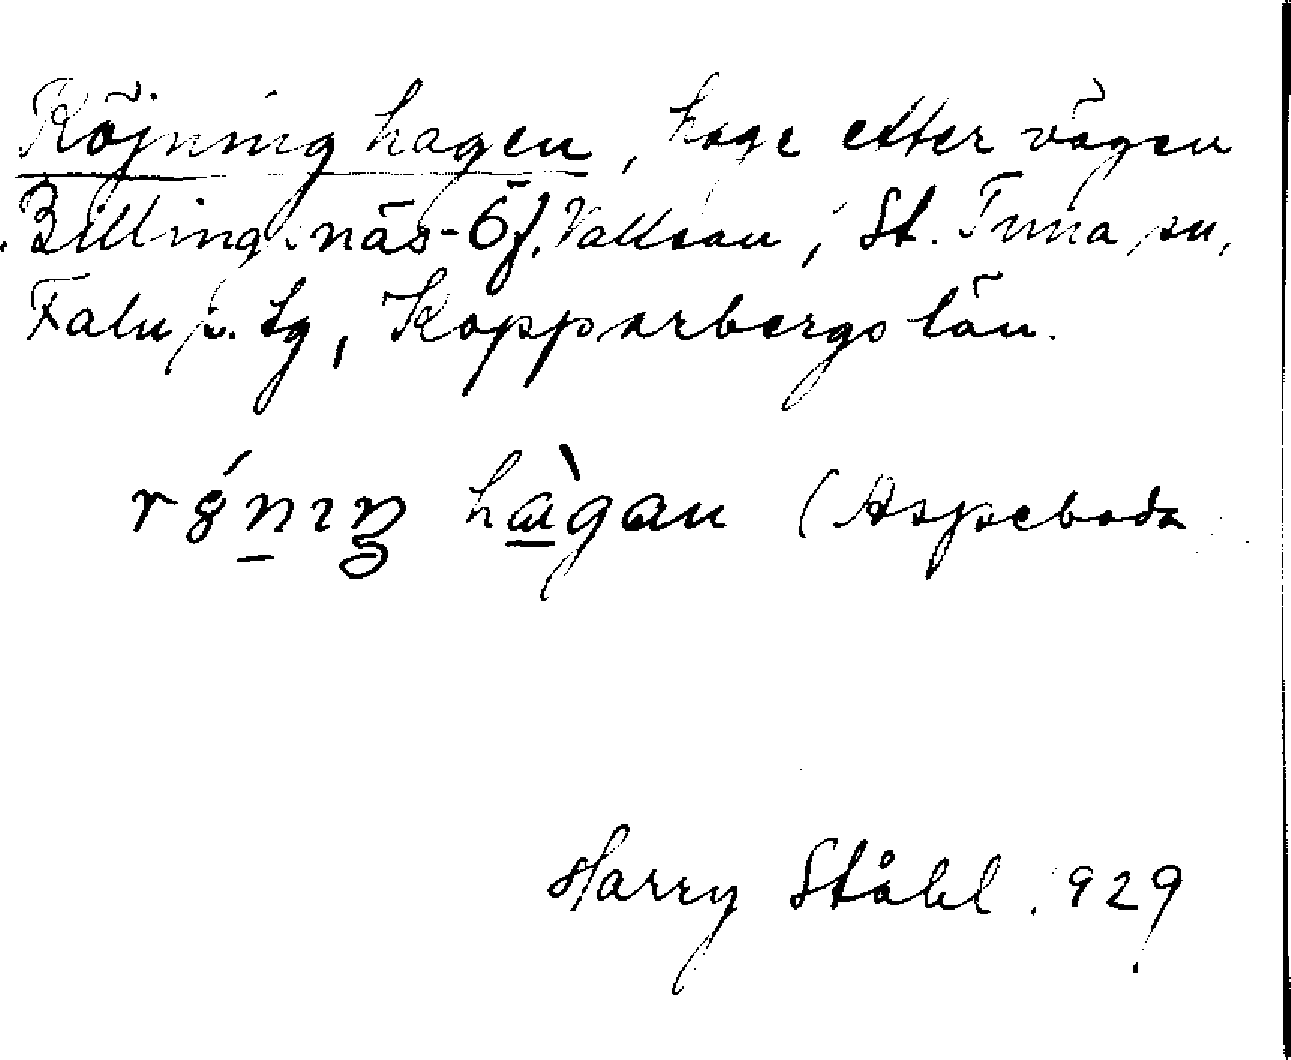 Röjninghagen, hage efter vägen
Billingsnäs-Öf. Vallsan, St. Tuna sn,
Falu s. tg, Kopparbergs län.
hàgan (Aspeboda
Harry Ståhl. 929